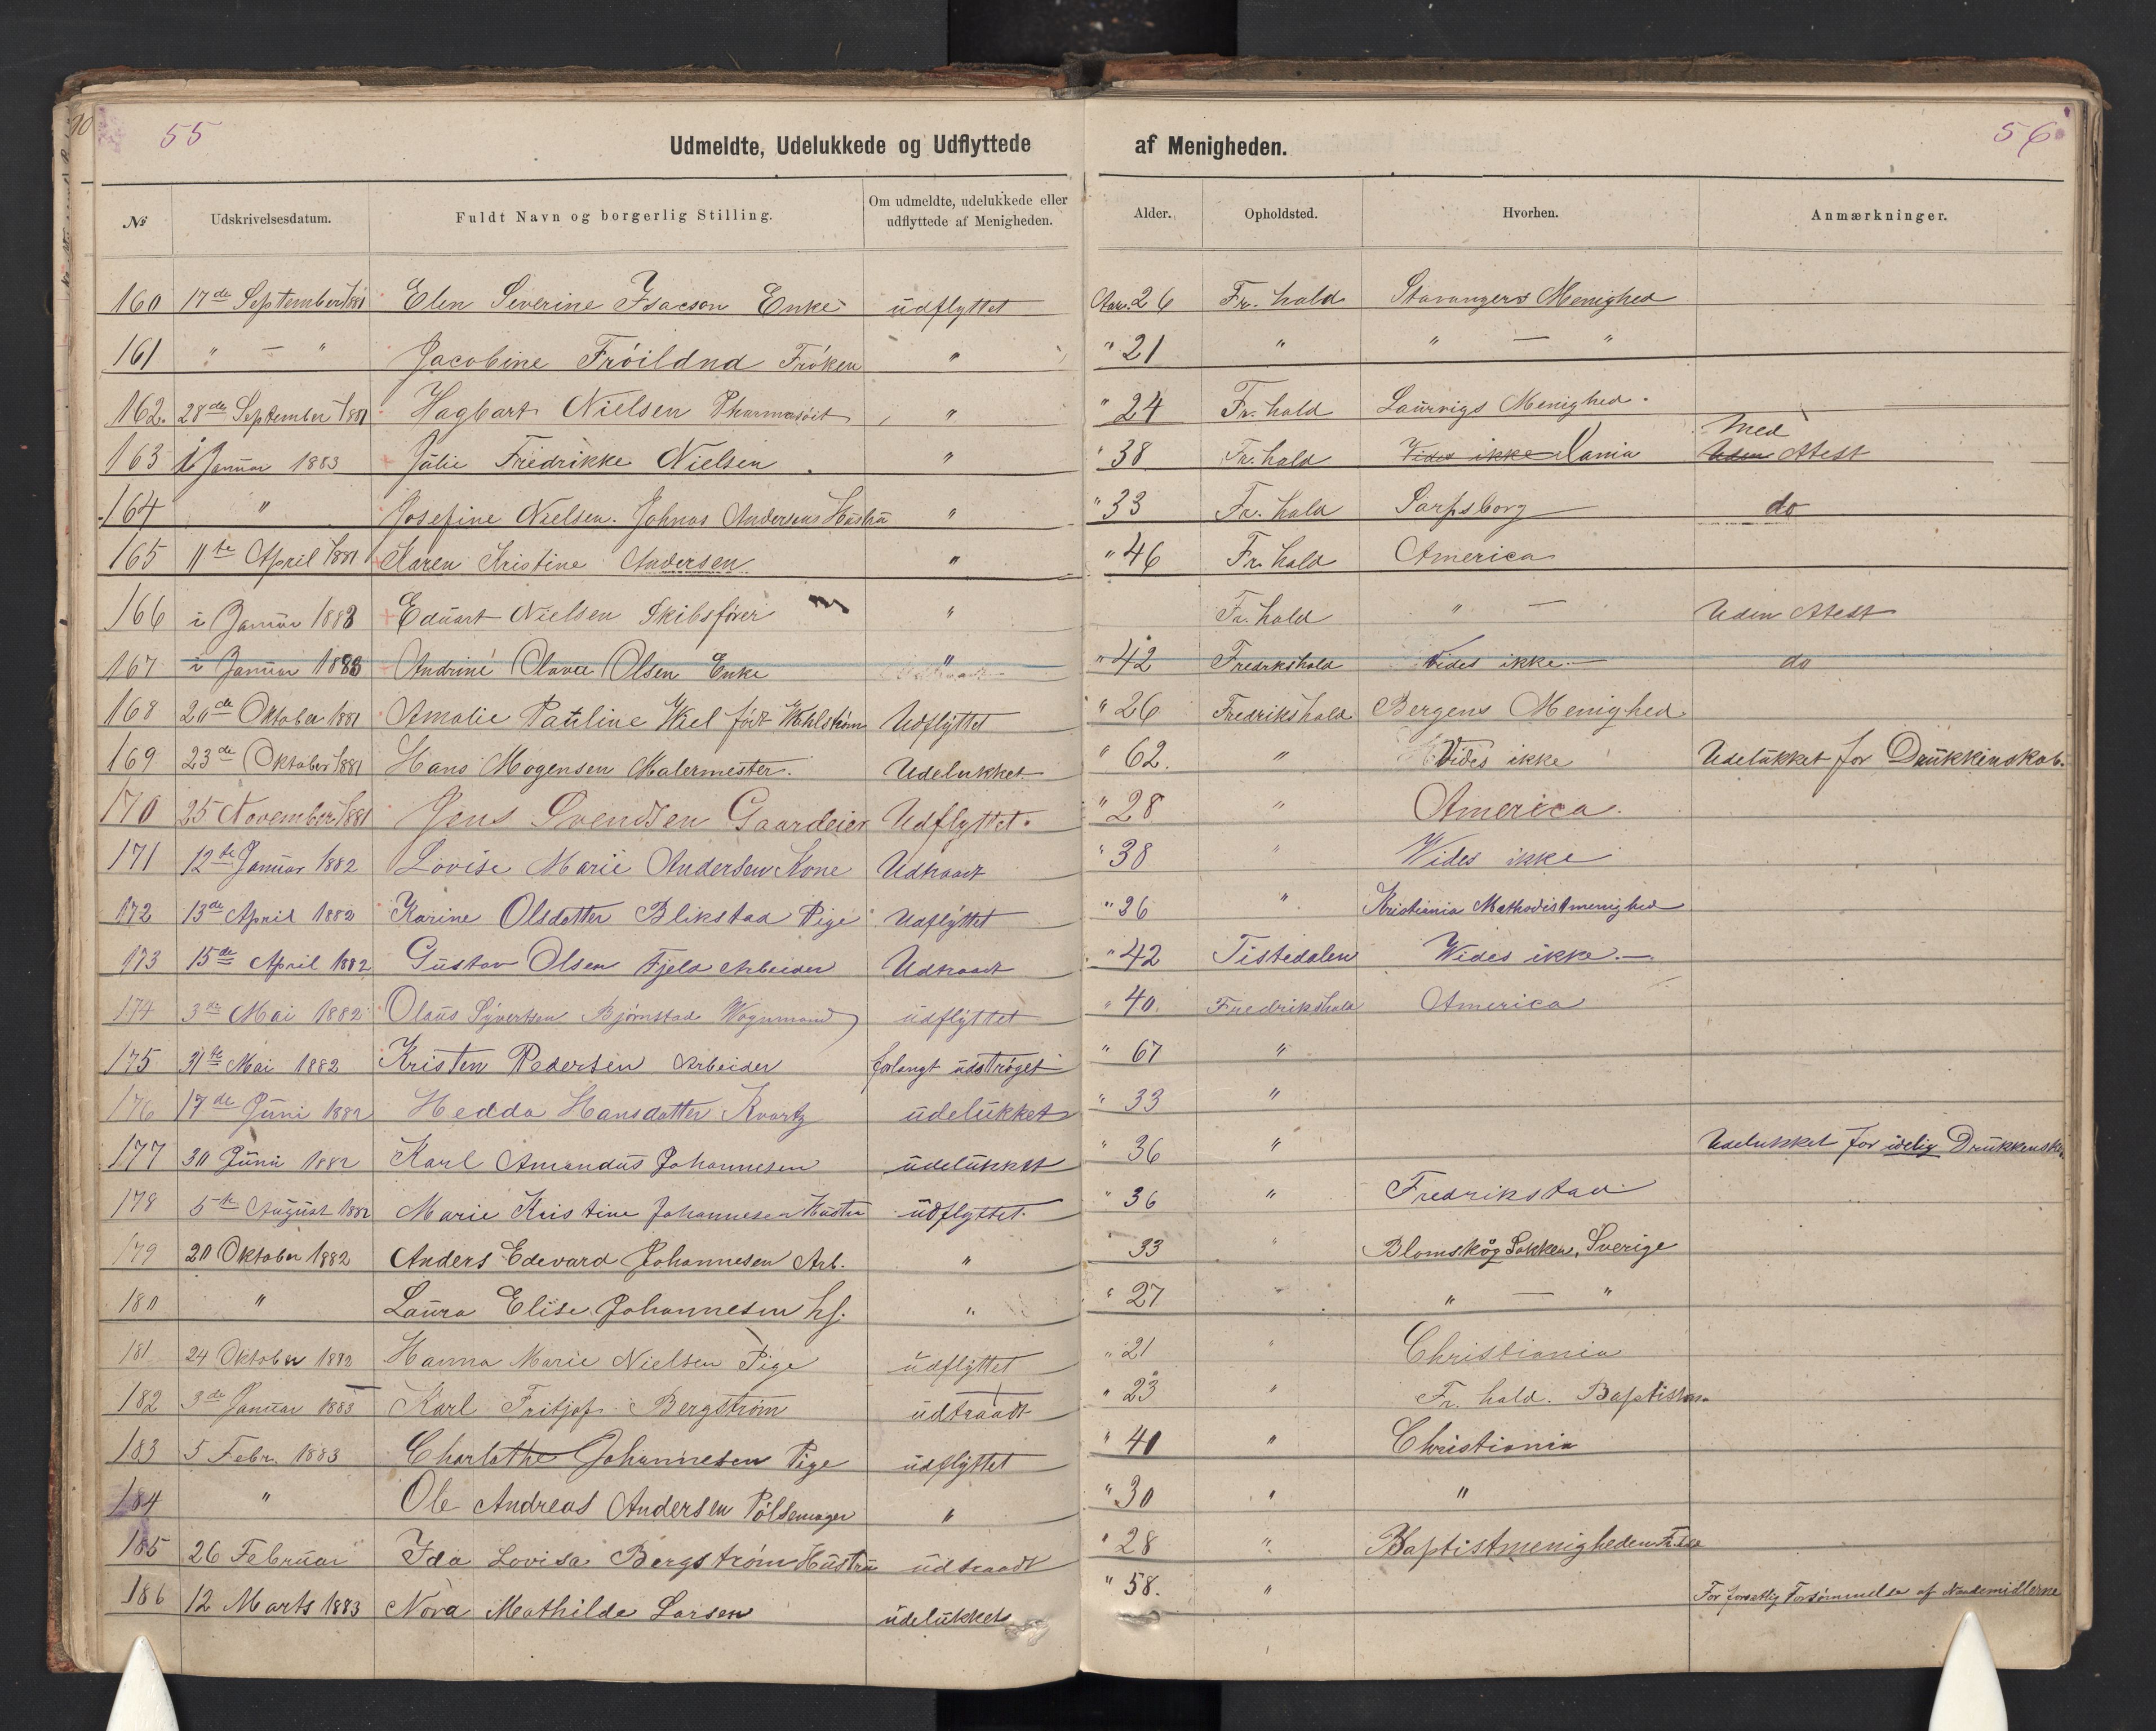 55
56
Udmeldte, Udelukkede og Udflyttede af Menigheden.
№ Udskrivelsesdatum. Fuldt Navn og borgerlig Stilling. Om udmeldte, udelukkede eller udflyttede af Menigheden. Alder. Opholdsted. Hvorhen. Anmærkninger.
160 17de September 1881 Elen Severine Isacson Enke udflyttet Aar. 26 Fr. hald Stavangers Menighed
161 " — " Jacobine Fröildnd Fröken " " 21 " " — "
162. 28de September 1881 Hagbart Nielsen " " 24 Fr. hald Laurvigs Menighed.
163 i Januar 1883 Julie Fredrikke Nielsen " " 38 Fr. hald Vides ikke Dania Uden Med Atest
164 " Josefine Nielsen. Johnas Andersens Hustru " " 33 Fr. hald Sarpsborg do
165 11te April 1881 Karen Kristine Andersen " " 46 Fr. hald America
166 i Januar 1883 Eduart Nielsen Skibsfører " Fr. hald " — Uden Atest
167 i Januar 1883 Andrine Olava Olsen Enke " " 42 Fredrikshald Vides ikke — do
168 20de Oktober 1881 Amalie Pauline Wiel født Wahlstrøm Udflyttet " 26 Fredrikshald Bergens Menighed
169 23de Oktober 1881 Hans Mogensen Malermester. Udelukket " 62. " Vides ikke Udelukket for Drukkenskab.
170 25 November 1881 Jens Svendsen Gaardeier Udflyttet. " 28 " America.
171 12te Januar 1882 Lovise Marie Andersen Kone Udtraadt " 38 " Wides ikke
172 13de April 1882 Karine Olsdatter Blikstad Pige Udflyttet " 36 " Kristiania Mathodistmenighed
173 15de April 1882 Gustav Olsen Fjeld Arbeider Udtraadt " 42 Tistedalen Wides ikke. —
174 3de Mai 1882 Olaus Syvertsen Bjørnstad Vognmand udflyttet " 40. Fredrikshald America
175 31te Mai 1882 Kristen Pedersen Arbeider forlangt udstrøget " 67 "
176 17de Juni 1882 Hedda Hansdatter Kvartz udelukket " 33 "
177 30 Juni 1882 Karl Amandus Johannesen udelukket " 36 " Udelukket for idelig Drukkensk.
178 5te August 1882 Marie Kristine Johannesen Hustru udflyttet. " 36 " Fredrikstad
179 20 Oktober 1882 Anders Edevard Johannesen Arb. " 33 " Blomskøg Sokken, Sverige
180 " Laura Elise Johannesen hf. " " 27 " " — "
181 24 Oktober 1882 Hanna Marie Nielsen Pige udflyttet " 21 " Christiania
182 3de Januar 1883 Karl Fritjof Bergstrøm udtraadt " 23 " Fr. hald. Baptistm
183 5 Febr. 1883 Charlothe Johannesen Pige udflyttet " 40 " Christiania
184 " Ole Andreas Andersen Pølsemager " " 30 " "
185 26 Februar Ida Lovisa Bergstrøm Hustru udtraadt " 28 " Baptistmenigheden
186 12 Marts 1883 Nora Mathilde Larsen udelukket " 58. " For forsætlig Forsømmelse af Naademidlerne